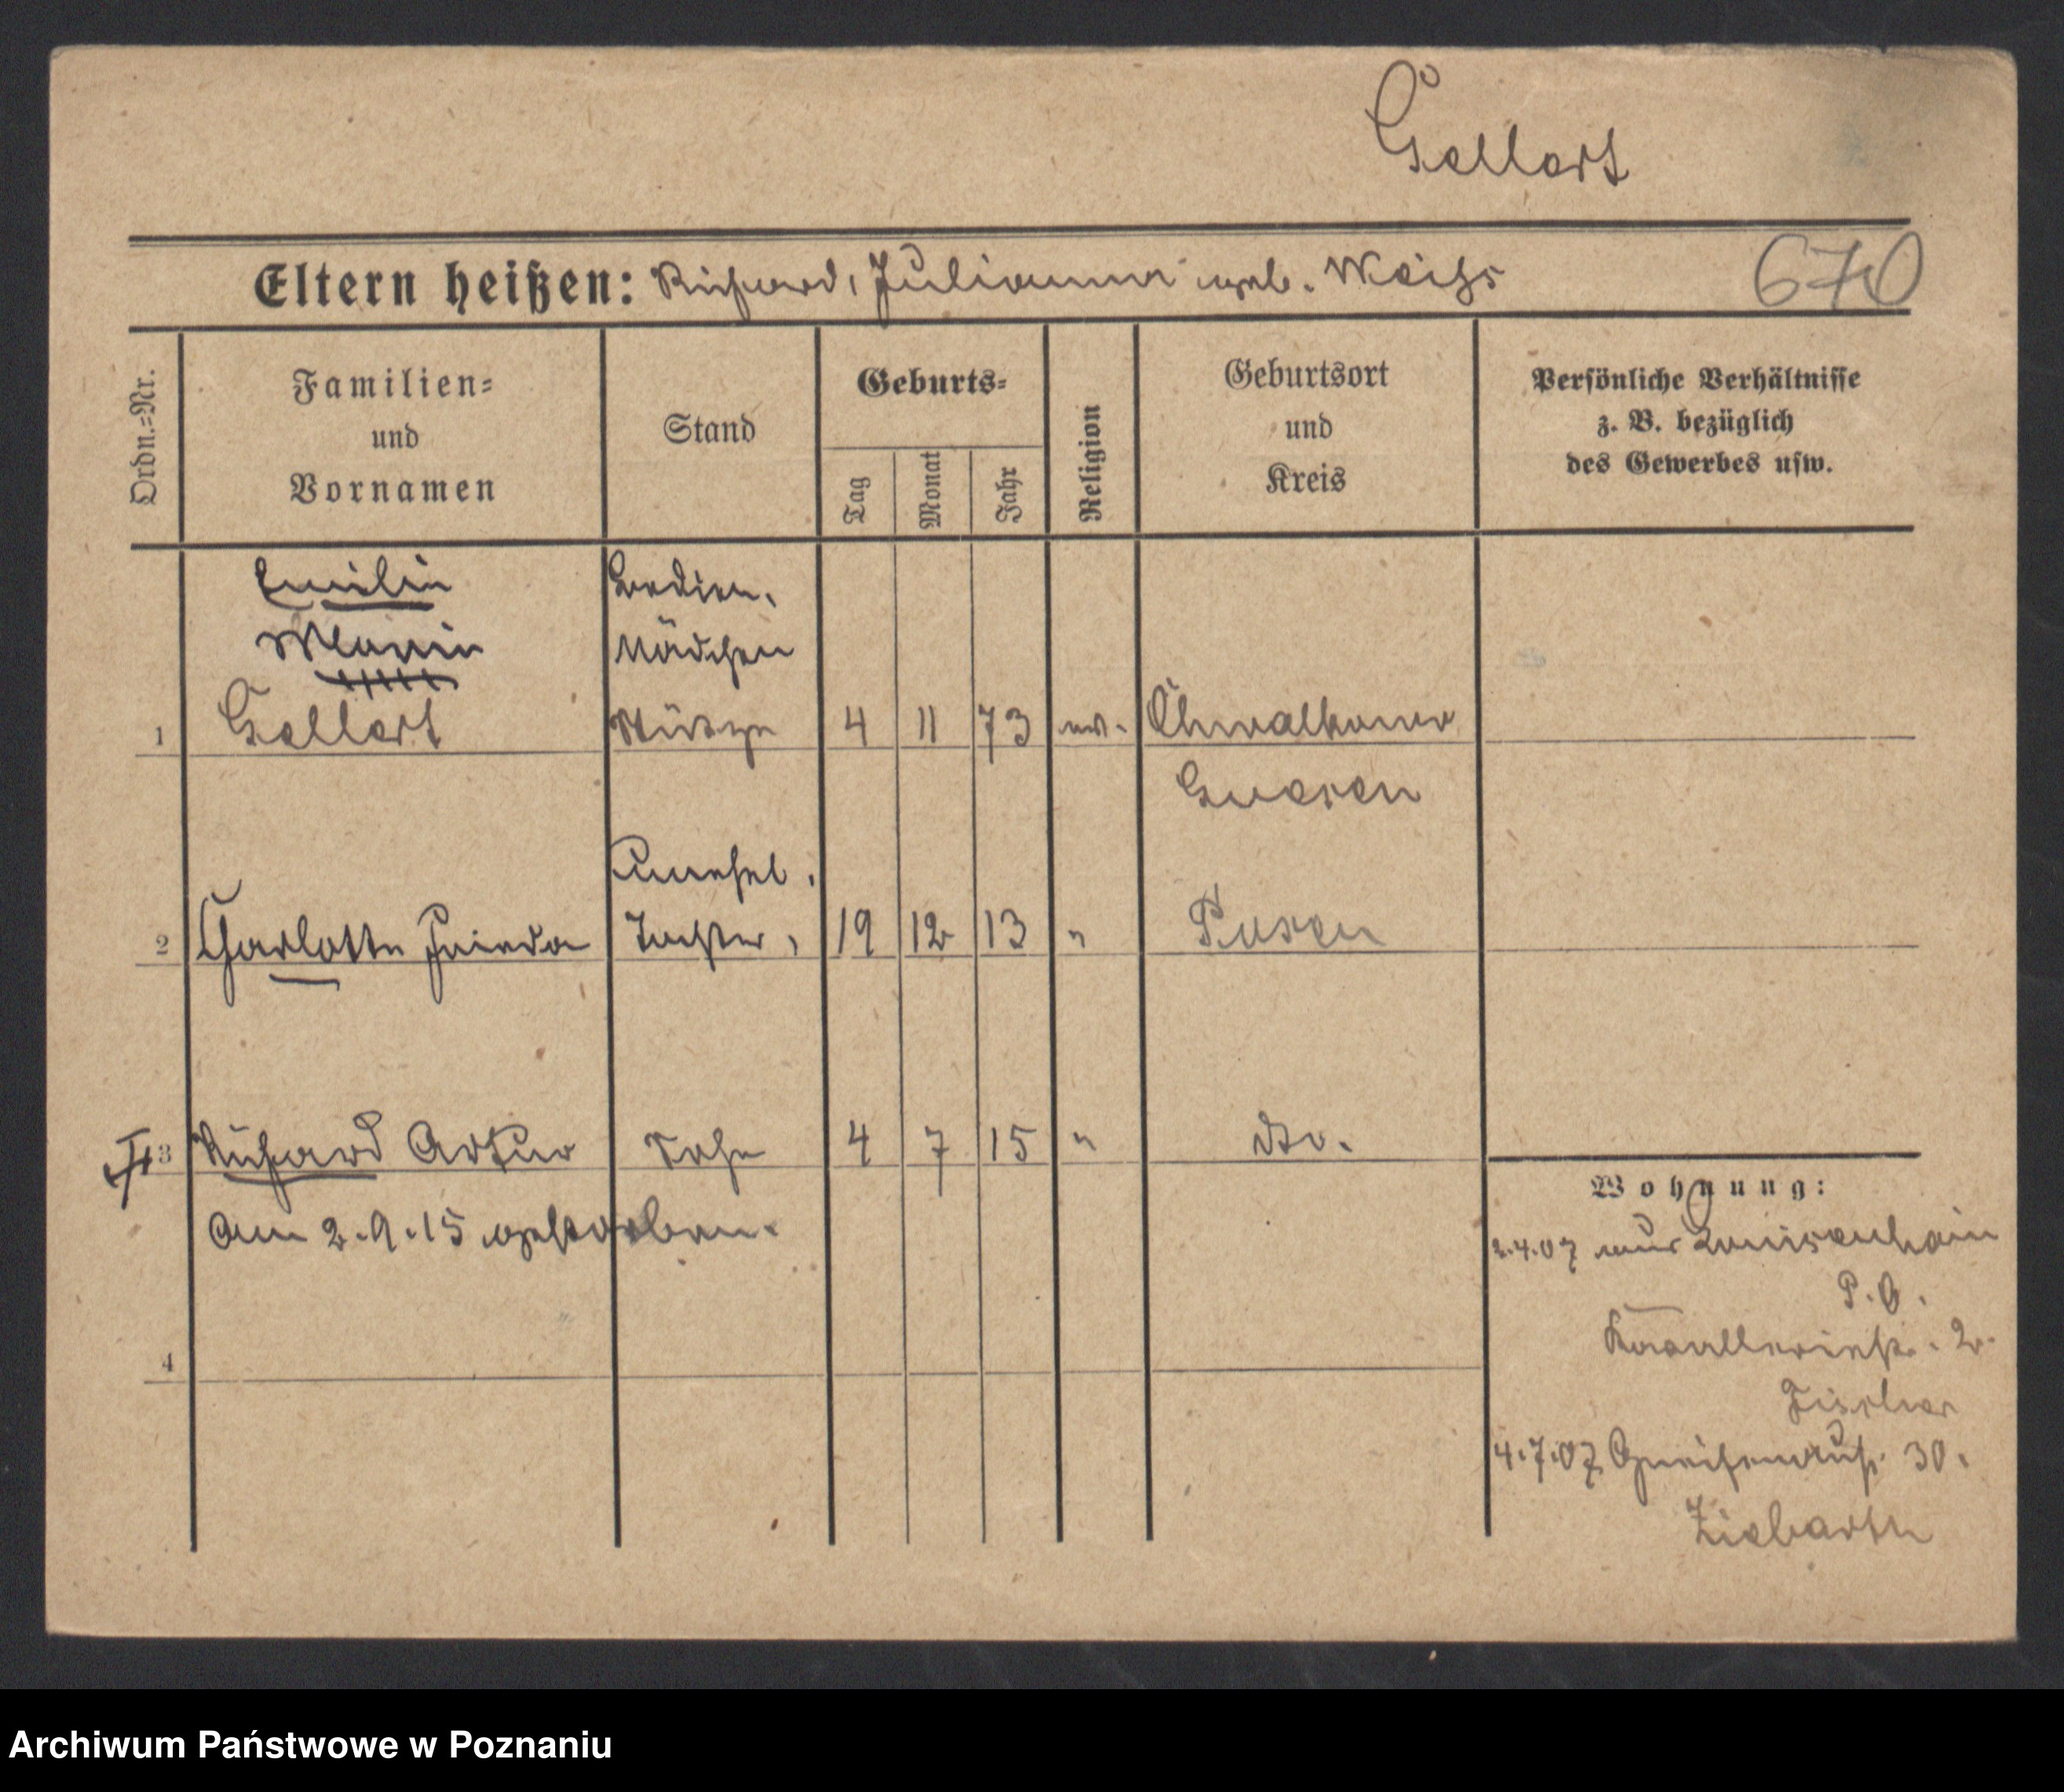 Gellert
Eltern heißen: Richard, Julianna geb. Weiss
670
Ordn.=Nr.
Familien=
und
Vornamen
Stand
Geburts=
Tag
Monat
Jahr
Religion
Geburtsort
und
Kreis
Persönliche Verhältnisse
z. B. bezüglich
des Gewerbes usw.
Emilie
Marie
Gellert
Bedien.
Mädchen
Stütze
1
4 11 73 ev.
Gnesen
unehel.
Tochter,
2 Charlotte Frieda
19 12 13 "
Posen
3 Richard Artur Sohn 4 7 15 " dto.
am 2.9.15 gestorben.
4
Wohnung:
2.4.07 aus Luisenhain
P. O.
2.
Fischer
4.7.07 Gneisenaustr. 30.
Ziebarth
Archiwum Państwowe w Poznaniu